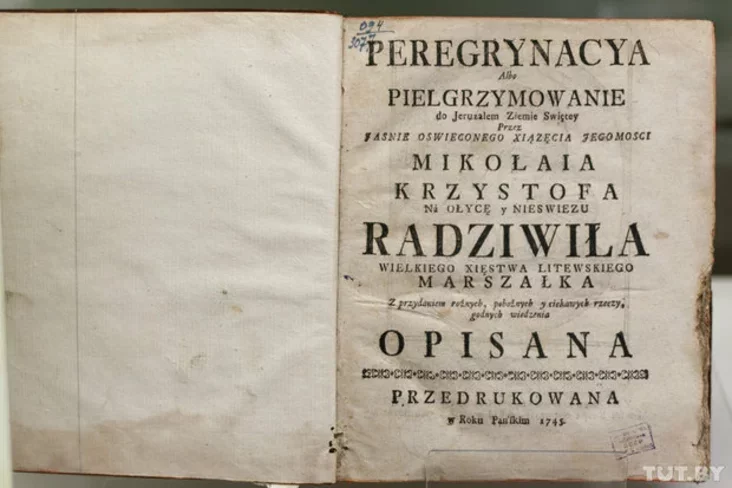 094
3077
PEREGRYNACYA
Albo
PIELGRZYMOWANIE
do Jeruzalem Ziemie Swiętey
Przez
JASNIE OSWIECONEGO XIĄZĘCIA JEGOMOSCI
MIKOŁAIA
KRZYSTOFA
Ná OŁYCĘ y NIESWIEZU
RADZIWIŁA
WIELKIEGO XIĘSTWA LITEWSKIEGO
MARSZAŁKA
Z przydaniem rożnych, pobożnych y ciekawych rzeczy,
godnych wiedzenia
OPISANA
PRZEDRUKOWANA
w Roku Pańſkim 1745.
TUT.BY